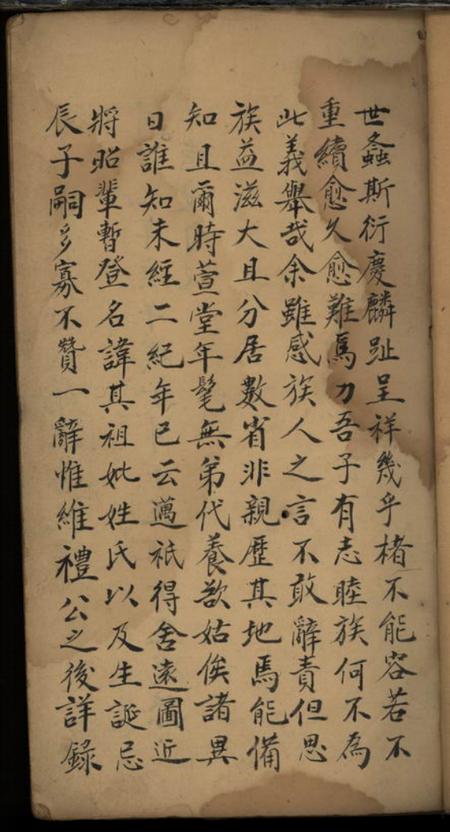 世螽斯衍慶麟趾呈祥幾乎楮不能容若不
重續愈久愈難為力吾子有志睦族何不為
此義舉哉余雖感族人之言不敢辭責但思
族益滋大且分居數省非親歷其地焉能備
知且爾時萱堂年髦無弟代養欲姑俟諸異
日誰知未經二紀年已云邁祇得舍遠圖近
將昭輩暫登名諱其祖妣姓氏以及生誕忌
辰子嗣多寡不贊一辭惟維禮公之後詳錄